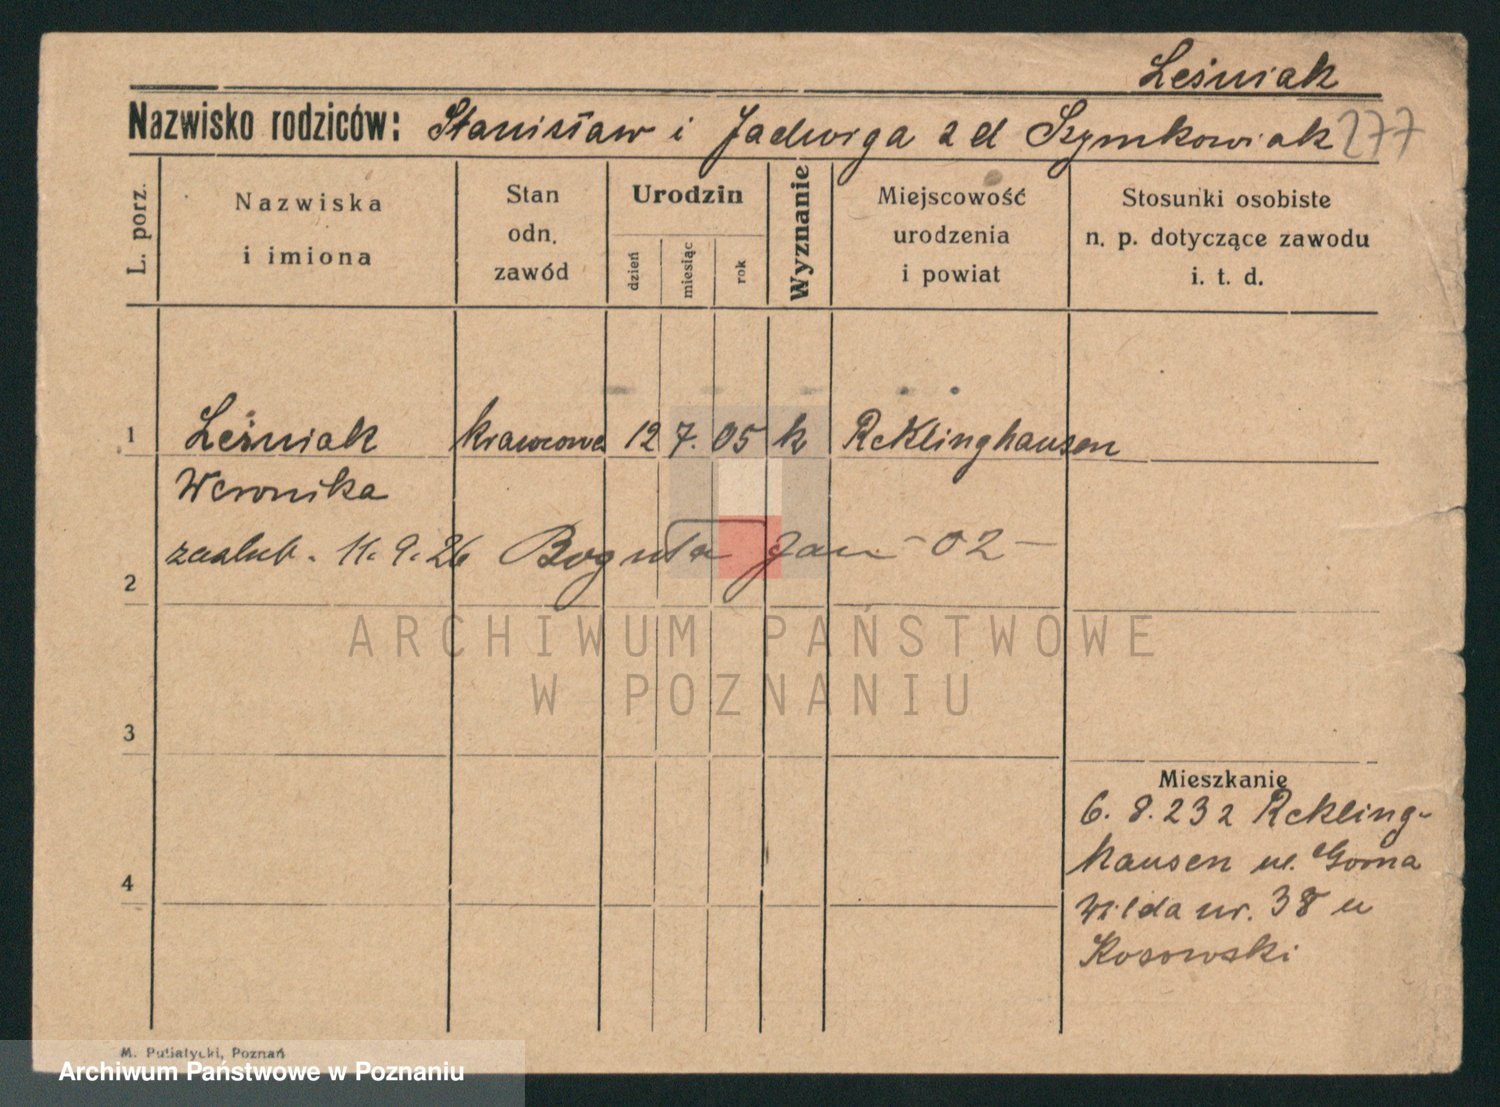 Leśniak
Nazwisko rodziców: Stanisław i Jadwiga z d Szymkowiak 277
L. porz.
Nazwiska
i imiona
Stan
odn.
zawód
Urodzin
dzień
miesiąc
rok
Wyznanie
Miejscowość
urodzenia
i powiat
Stosunki osobiste
n. p. dotyczące zawodu
i. t. d.
1 Leśniak krawcowa 12 7. 05 k Reklinghausen
Weronika
zaślub. 11. 9. 26 Boguta Jan - 02 -
2
ARCHIWUM PAŃSTWOWE
W POZNANIU
3
Mieszkanie
6. 8. 23 z Rekling-
hausen ul. Gorna
4
Wilda nr. 38 u
Kosowski
M. Putiatycki, Poznań
Archiwum Państwowe w Poznaniu